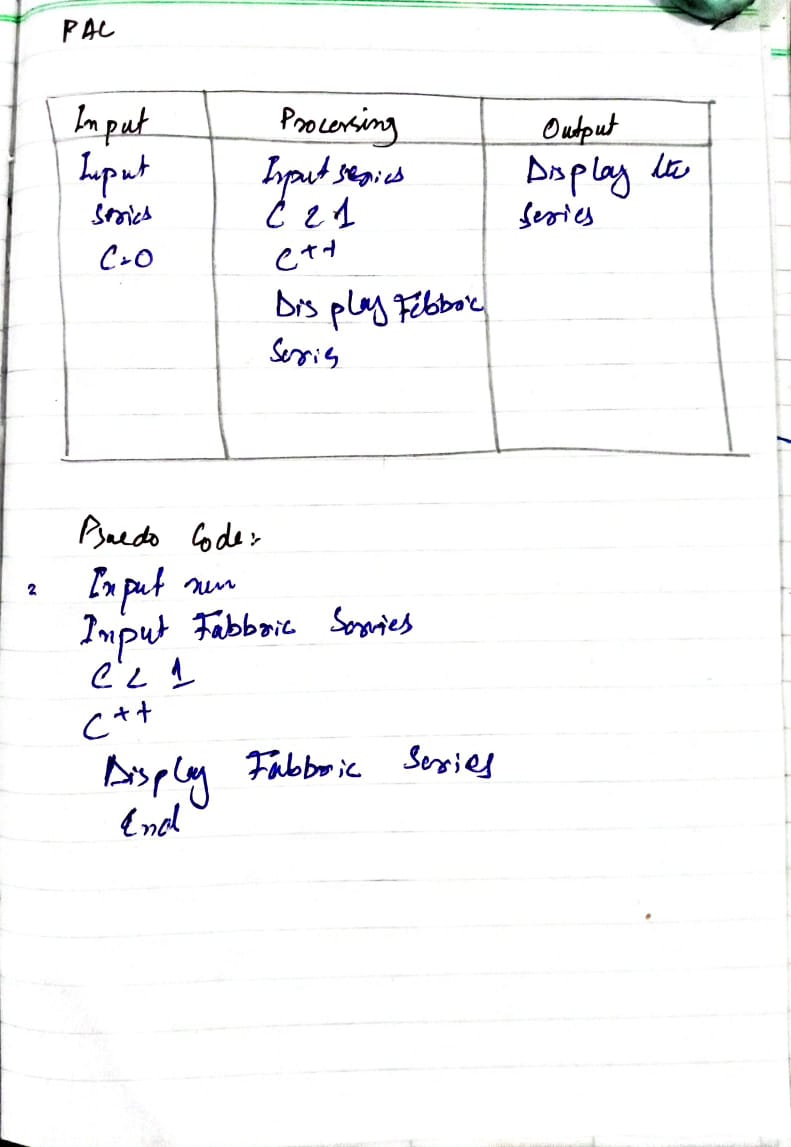 PAC
Input Processing Output
Input
Series
C=0
Input series
C < 1
C++
Display Fibboric
Seris
Display the
Series
Psuedo Code:
2 Input num
Input Fabboric Sorries
C < 1
C++
Display Fabboric Series
End